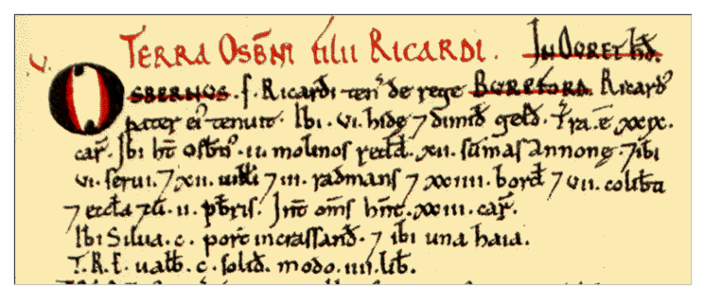 .V. TERRA OSB̄NI filii RICARDI. IN OVRET HD̄.
OSBERNUS .f. Ricardi ten̄ de rege BUREFORD. Ricardꝰ
pater eiꝰ tenuit. Ibi .vi. hidę 7 dimid̄ geld̄. T͛ra .ē. xxix.
car̄. Ibi ht̄ Osbn̄ꝰ .ii. molinos redd̄ .xii. sūmas annonę. 7 ibi
vi. serui. 7 xii. uilli 7 iii. radmans 7 xxiiii. bord̄ 7 vii. colib̄ti
7 eccl̄a cū .ii. pb̄ris. Int̄ om̄s hn̄t .xxiii. car̄.
Ibi Silua .c. porc̄ incrassand̄. 7 ibi una haia.
T.R.E. ualb̄ .c. solid̄. modo .iiii. lib̄.